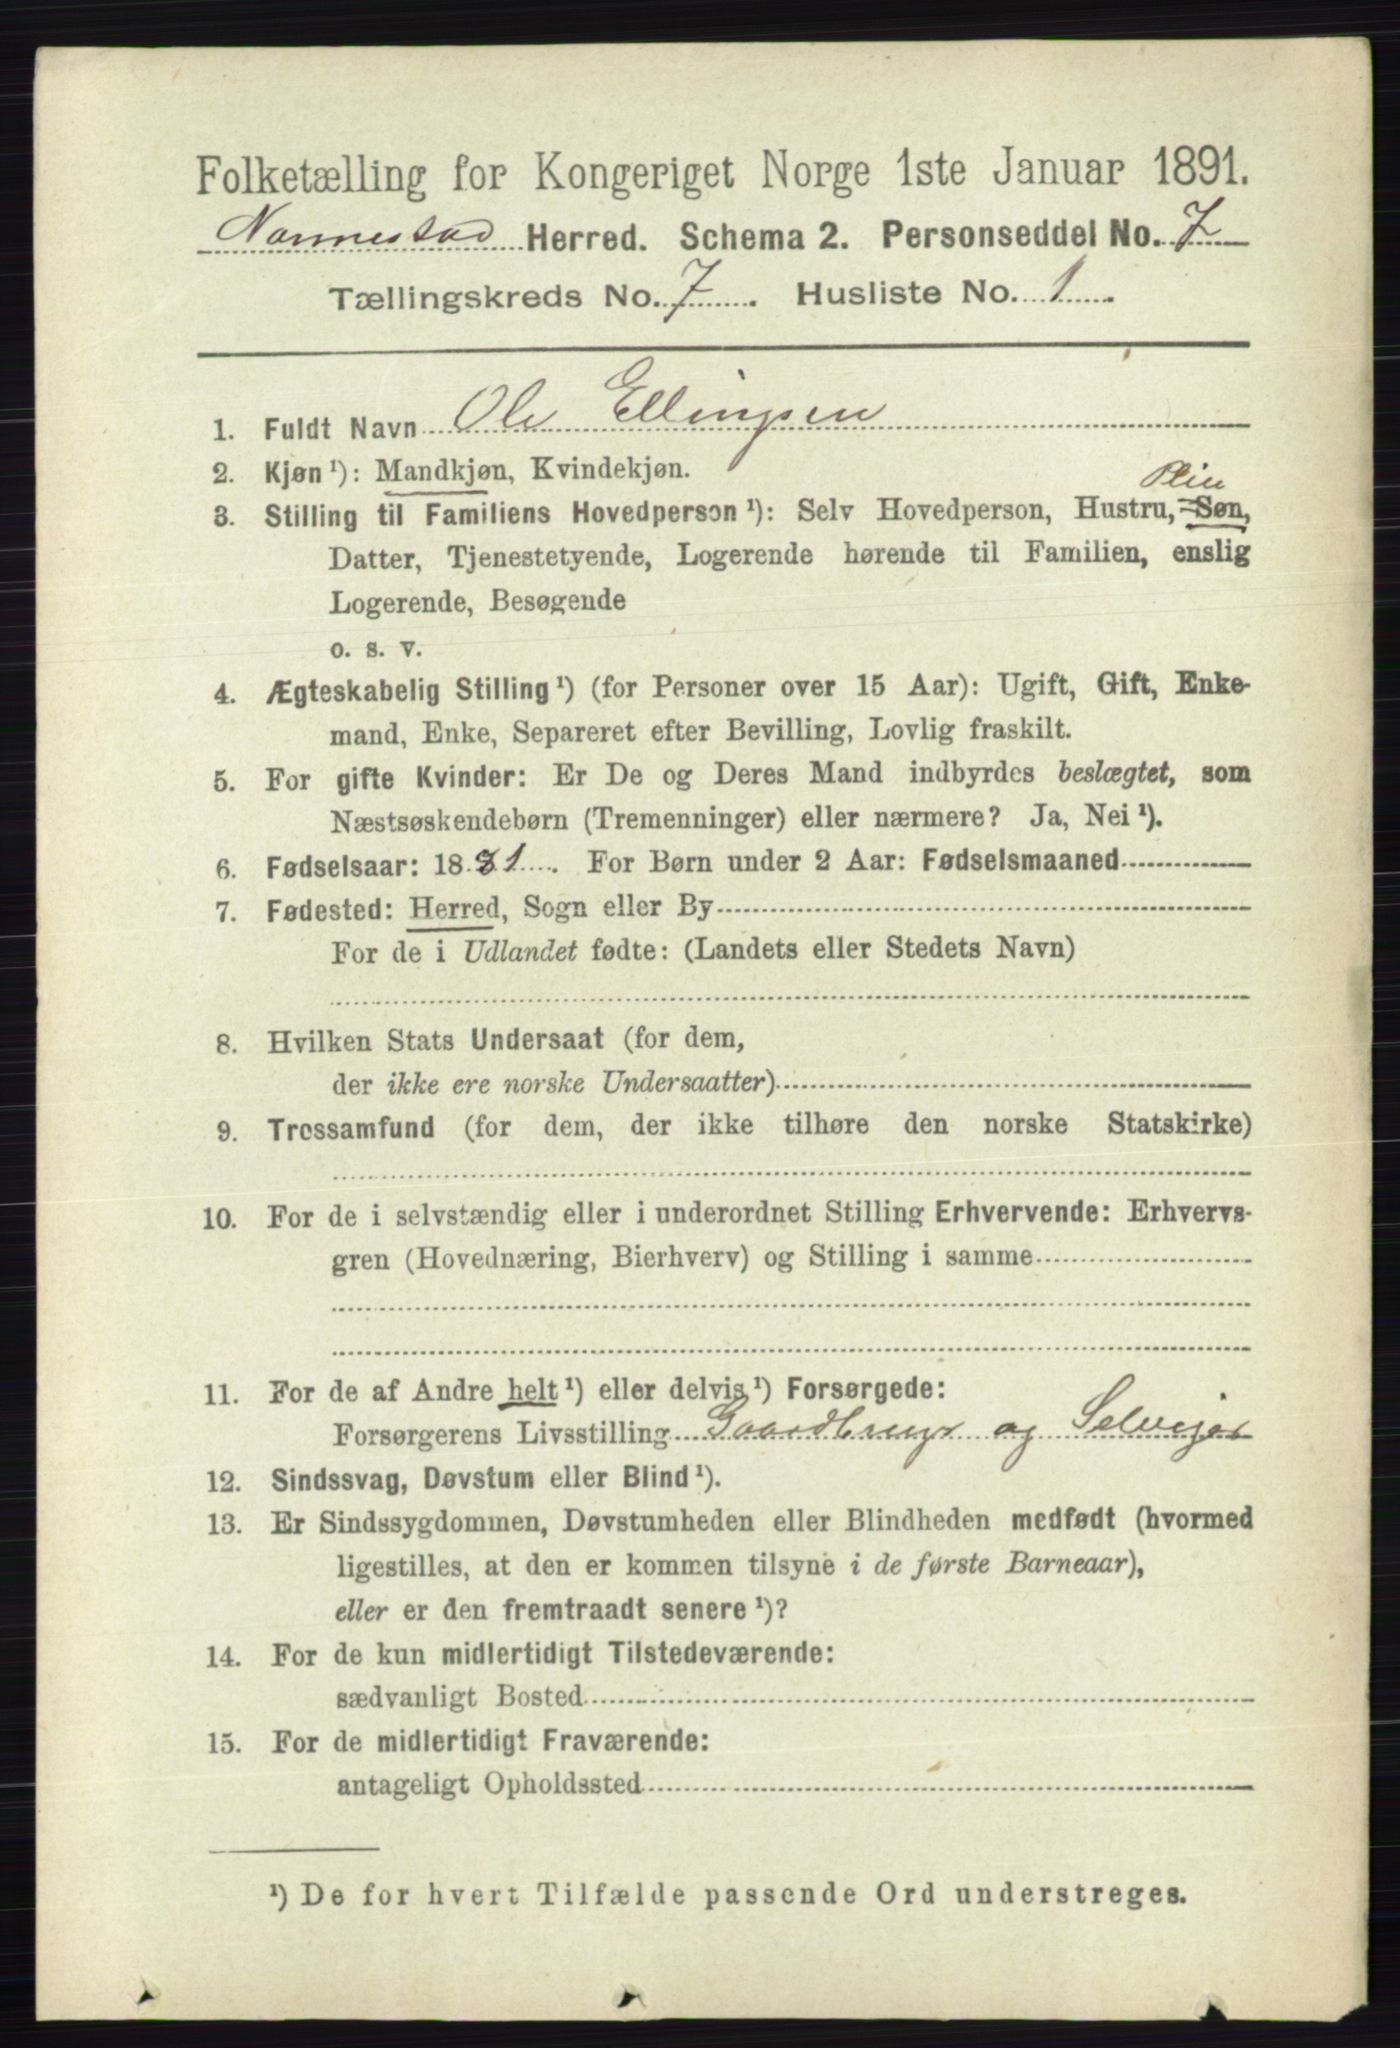 Folketælling for Kongeriget Norge 1ste Januar 1891.
Nannestad Herred. Schema 2. Personseddel No. 7
Tællingskreds No. 7. Husliste No. 1.
1. Fuldt Navn Ole Ellingsen
2. Kjøn ¹): Mandkjøn, Kvindekjøn.
Pleie
3. Stilling til Familiens Hovedperson ¹): Selv Hovedperson, Hustru, Søn,
Datter, Tjenestetyende, Logerende hørende til Familien, enslig
Logerende, Besøgende
o. s. v.
4. Ægteskabelig Stilling ¹) (for Personer over 15 Aar): Ugift, Gift, Enke-
mand, Enke, Separeret efter Bevilling, Lovlig fraskilt.
5. For gifte Kvinder: Er De og Deres Mand indbyrdes beslægtet, som
Næstsøskendebørn (Tremenninger) eller nærmere? Ja, Nei ¹).
6. Fødselsaar: 1881. For Børn under 2 Aar: Fødselsmaaned
7. Fødested: Herred, Sogn eller By
For de i Udlandet fødte: (Landets eller Stedets Navn)
8. Hvilken Stats Undersaat (for dem,
der ikke ere norske Undersaatter)
9. Trossamfund (for dem, der ikke tilhøre den norske Statskirke)
10. For de i selvstændig eller i underordnet Stilling Erhvervende: Erhvervs-
gren (Hovednæring, Bierhverv) og Stilling i samme
11. For de af Andre helt ¹) eller delvis ¹) Forsørgede:
Forsørgerens Livsstilling Gaardbruger og Selveier
12. Sindssvag, Døvstum eller Blind ¹).
13. Er Sindssygdommen, Døvstumheden eller Blindheden medfødt (hvormed
ligestilles, at den er kommen tilsyne i de første Barneaar),
eller er den fremtraadt senere ¹)?
14. For de kun midlertidigt Tilstedeværende:
sædvanligt Bosted
15. For de midlertidigt Fraværende:
antageligt Opholdssted
¹) De for hvert Tilfælde passende Ord understreges.